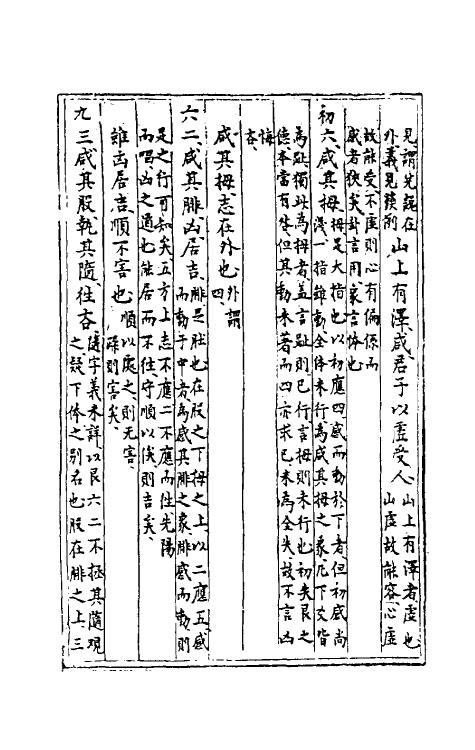 見謂先誤在
外義見前
山上有澤咸君子以虛受人
山上有澤者虛也
山虛故能容心虛
故能受不虛則心有偏係而
感者狹矣卦言用象言体也
初六咸其拇
拇是大指也以初應四感而動於下者但初感尚
淺一指雖動全体未行為咸其拇之象凡下爻皆
為趾獨此為拇者蓋言趾則已行言拇則未行也初失艮之
德本當有咎但其動未著而四亦求已未為全失故不言凶
悔
吝
咸其拇志在外也
外謂
四
六二咸其腓凶居吉
腓是肚也在股之下拇之上以二應五感
而動于中者為咸其腓之象腓感而動則
是之行可知矣五方上志不應二不應而往先陽
而唱凶之道也能居而不往守順以俟則吉矣
雖凶居吉順不害也
順以處之則无害
躁則害矣
九三咸其股執其隨往吝
隨字義未詳以艮六二不拯其隨現
之疑下体之别名也股在腓之上三